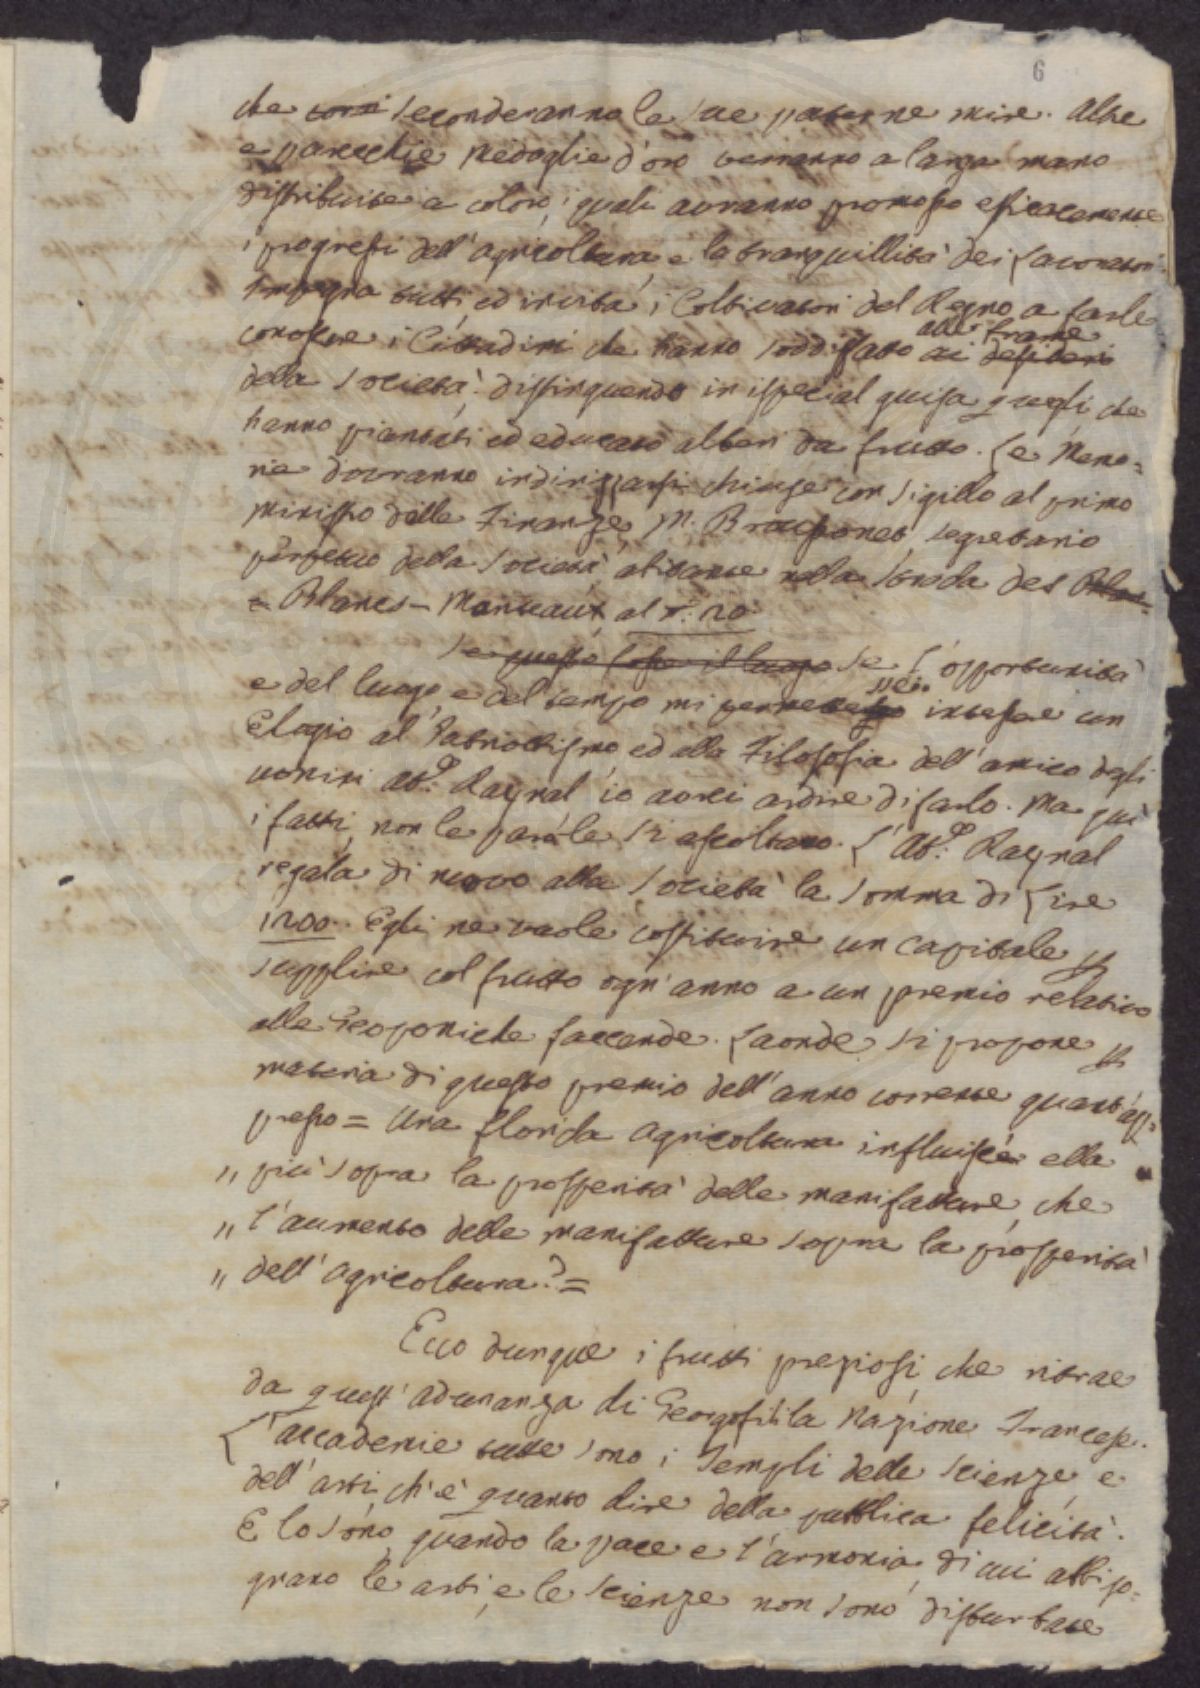 6
che seconderanno le sue paterne mire. Altre
e parecchie Medaglie d'oro verranno a larga mano
distribuite a coloro, i quali avranno promosso efficacemente
i progressi dell'agricoltura, e la tranquillità dei Lavoratori.
Impegna tutti, ed invita i Coltivatori del Regno a farle
conoscere i Cittadini che hanno soddisfatto alle brame ai desideri
della Società, distinguendo in ispecial guisa quegli, che
hanno piantati ed educato alberi da frutto. Le Memo=
rie dovranno indirizzarsi chiuse con sigillo al primo
Ministro delle Finanze, M. Broussonet, segretario
perpetuo della Società, abitante nella Strada des
= Blancs-Manteaux al n: 20
Se questo fosse il luogo Se l'opportunità
e del luogo, e del tempo mi intessere un
Elogio al Patriottismo, ed alla Filosofia dell'amico degli
uomini Ab.e Raynal io avrei ardire di farlo. Ma quì
i fatti, non le parole si ascoltano. L'Ab.e Raynal
regala di nuovo alla Società la somma di Lire
1200. Egli ne vuole costituire un capitale
supplire col frutto ogn'anno a un premio relativo
alle Geoponiche faccende. Laonde si propone
materia di questo premio dell'anno corrente quant'ap=
presso = Una florida agricoltura influisce ella
„ più sopra la prosperità delle manifatture, che
„ l'aumento delle manifatture sopra la prosperità
„ dell'agricoltura? =
Ecco dunque i frutti preziosi, che ritrae
da quest'adunanza di Georgofili la Nazione Francese.
L'accademie tutte sono i Templi delle scienze, e
dell'arti, ch'è quanto dire della pubblica felicità.
E lo sono, quando la pace e l'armonia, di cui abbiso=
gnano le arti, e le scienze non sono disturbate